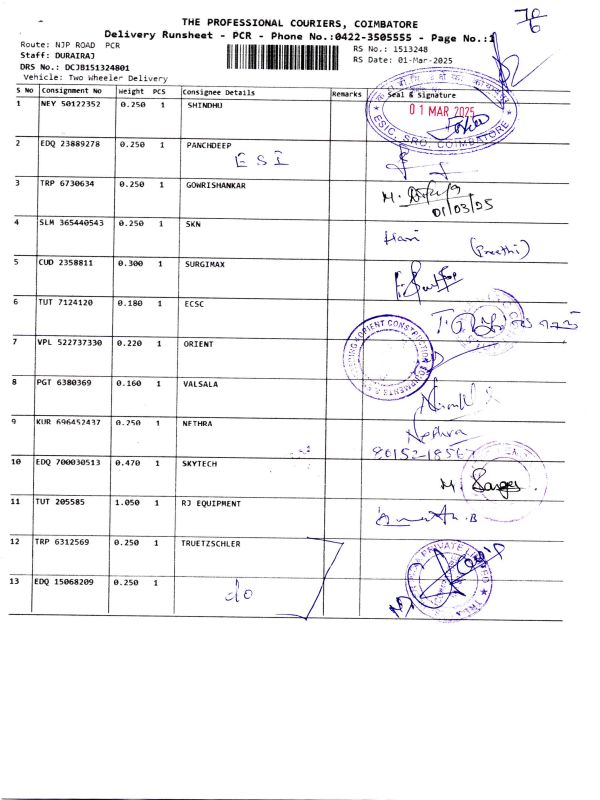 THE PROFESSIONAL COURIERS, COIMBATORE
Delivery Runsheet - PCR - Phone No.:0422-3505555 - Page No.:1
Route: NJP ROAD PCR
RS No.: 1513248
Staff: DURAIRAJ
RS Date: 01-Mar-2025
DRS No.: DCJB151324801
Vehicle: Two Wheeler Delivery
S No Consignment No Weight PCS Consignee Details Remarks Seal & Signature
1 NEY 50122352 0.250 1 SHINDHU
01 MAR 2025
ESIC, SRO, COIMBATORE
2 EDQ 23889278 0.250 1 PANCHDEEP
ESI
3 TRP 6730634 0.250 1 GOWRISHANKAR
01/03/25
4 SLM 365440543 0.250 1 SKN
Hari (Preethi)
5 CUD 2358811 0.300 1 SURGIMAX
6 TUT 7124120 0.180 1 ECSC
7 VPL 522737330 0.220 1 ORIENT
ORIENT CONSTRUCTION EQUIPMENTS
8 PGT 6380369 0.160 1 VALSALA
9 KUR 696452437 0.250 1 NETHRA
Nethra
80152-18567
10 EDQ 700030513 0.470 1 SKYTECH
11 TUT 205585 1.050 1 RJ EQUIPMENT
12 TRP 6312569 0.250 1 TRUETZSCHLER
PRIVATE LIMITED
13 EDQ 15068209 0.250 1
do